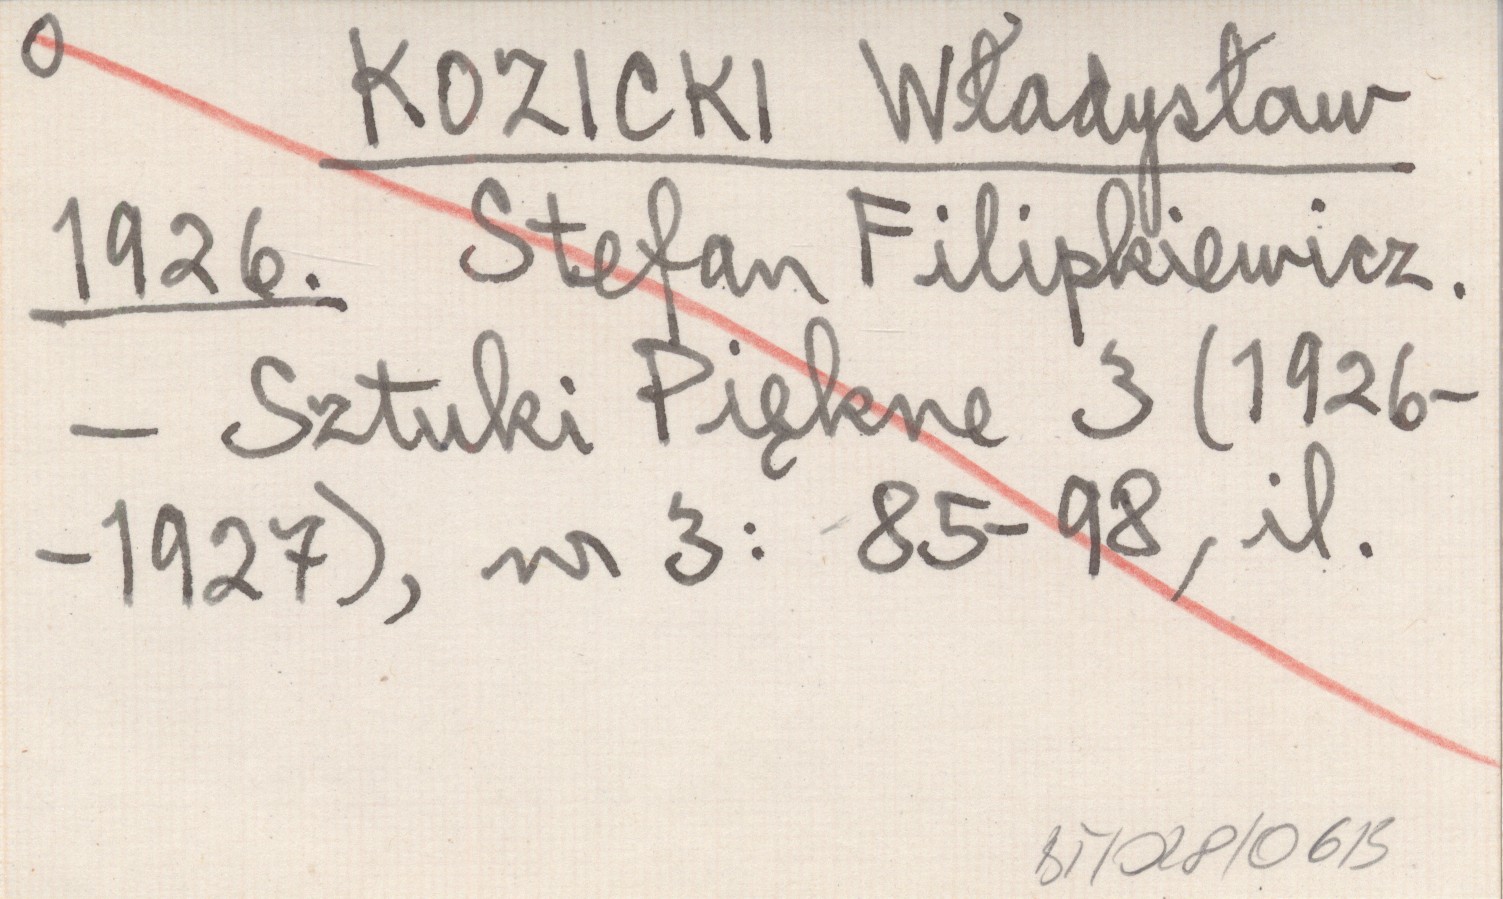 0
KOZICKI Władysław
1926. Stefan Filipkiewicz.
— Sztuki Piękne 3 (1926-
-1927), nr 3: 85-98, il.